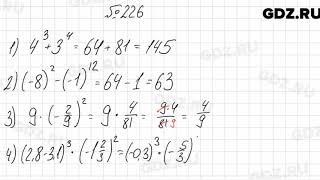 №226
GDZ.RU
1) 4³+3⁴=64+81=145
2) (-8)²-(-1)¹²=64-1=63
3) 9·(-2/9)²=9·4/81=9·4/81·9=4/9
4) (2,8-3,1)³·(-1 2/3)²=(-0,3)³·(-5/3)
GDZ.RU